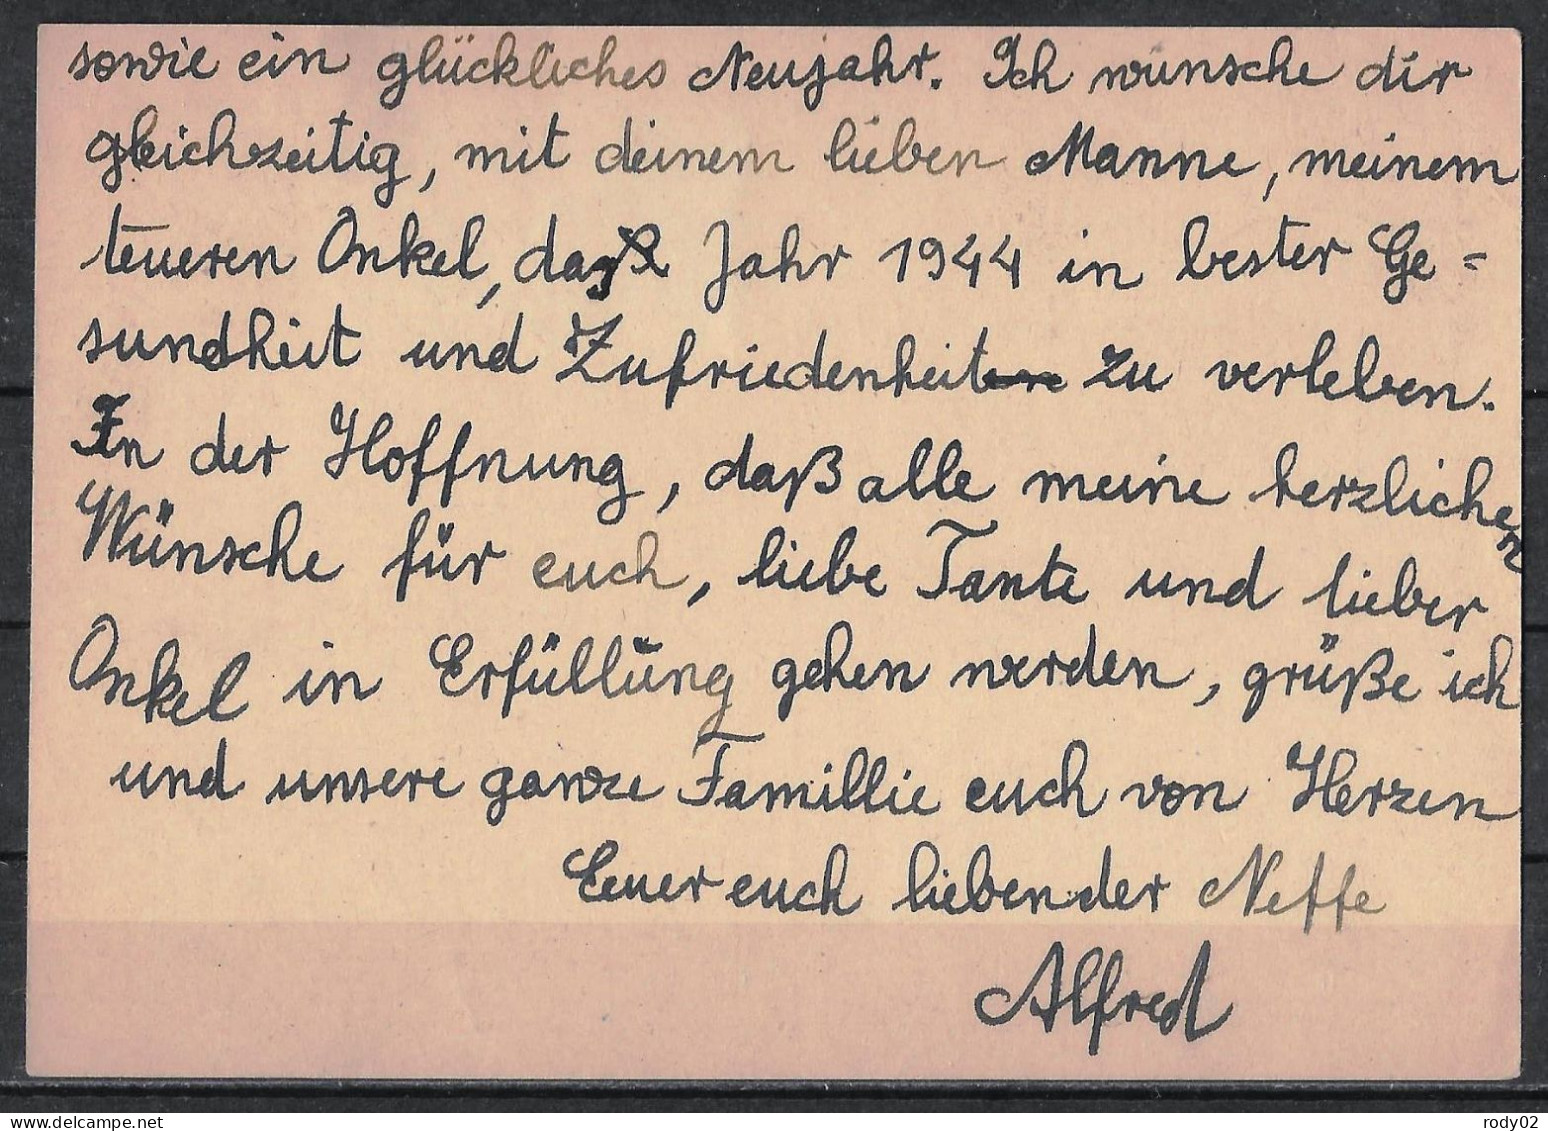 sowie ein glückliches Neujahr. Ich wünsche dir
gleichzeitig, mit deinem lieben Manne, meinem
teueren Onkel, das Jahr 1944 in bester Ge=
sundheit und Zufriedenheit zu verleben.
In der Hoffnung, daß alle meine herzlichen
Wünsche für euch, liebe Tante und lieber
Onkel in Erfüllung gehen werden, grüße ich
und unsere ganze Famillie euch von Herzen
Euer euch liebender Neffe
Alfred
rody02